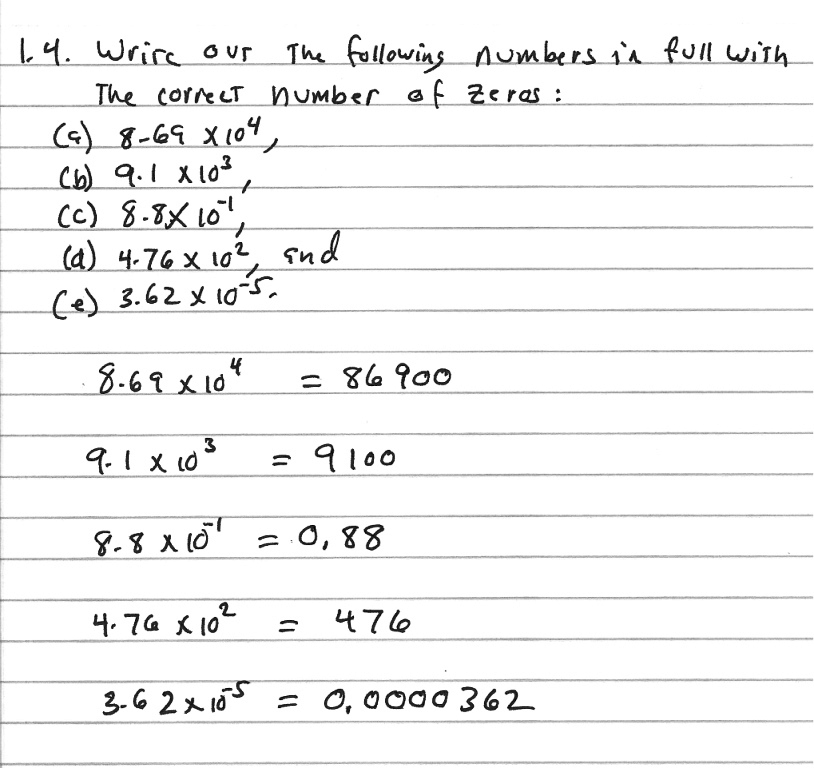 1.4. Write out the following numbers in full with
the correct number of zeros:
(a) 8.69 × 10⁴,
(b) 9.1 × 10³,
(c) 8.8 × 10⁻¹,
(d) 4.76 × 10², and
(e) 3.62 × 10⁻⁵.
8.69 × 10⁴ = 86 900
9.1 × 10³ = 9100
8.8 × 10⁻¹ = 0,88
4.76 × 10² = 476
3.62 × 10⁻⁵ = 0,0000362